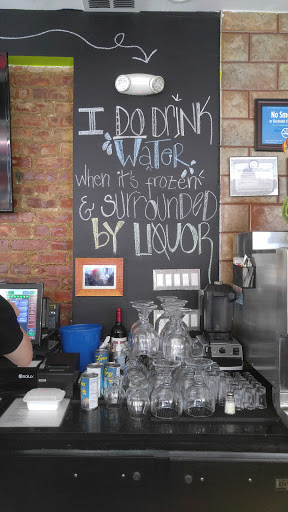 I DO DRINK
WATER
when it's frozen
& SURROUNDED
BY LIQUOR
No Smo